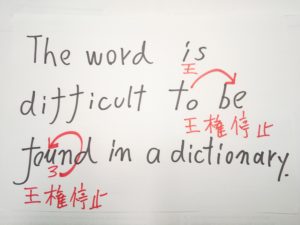 The word is
王
difficult to be
王権停止
found in a dictionary.
3
王権停止